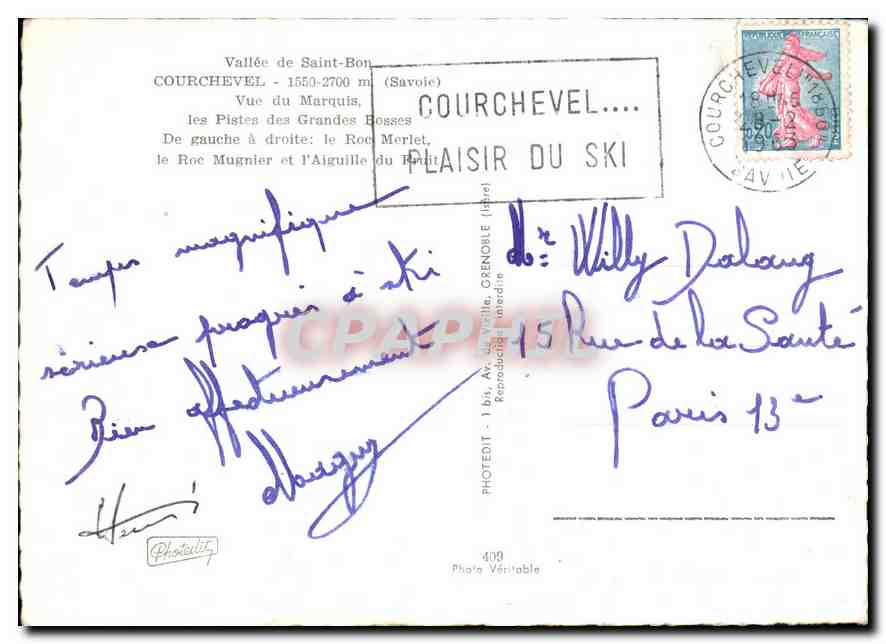 Vallée de Saint-Bon
COURCHEVEL - 1550-2700 m. (Savoie)
Vue du Marquis,
les Pistes des Grandes Bosses
De gauche à droite: le Roc Merlet,
le Roc Mugnier et l'Aiguille du Fruit
COURCHEVEL....
PLAISIR DU SKI
REPUBLIQUE FRANÇAISE
COURCHEVEL "1850"
SAVOIE
Temps magnifique
sérieux progrès à ski
Bien affectueusement
Henri
Photedit
PHOTEDIT - 1 bis, Av. de Vizille, GRENOBLE (Isère)
Reproduction interdite
Mr. Willy Dalang
15 Rue de la Santé
Paris 13e
409
Photo Véritable
CPAPHIL